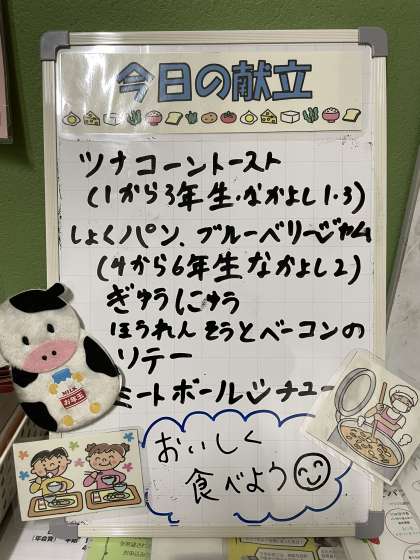 今日の献立
ツナコーントースト
(1から3年生・なかよし1・3)
しょくパン、ブルーベリージャム
(4から6年生なかよし2)
ぎゅうにゅう
ほうれんそうとベーコンの
ソテー
ミートボールシチュー
おいしく
食べよう
MILK
お年玉